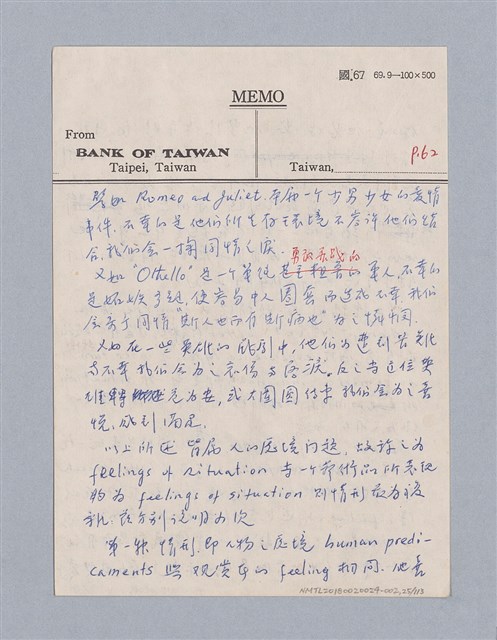 國.67 69.9—100×500
MEMO
From
BANK OF TAIWAN
Taipei, Taiwan
Taiwan,
p.62
譬如 Romeo and Juliet. 本屬一个少男少女的愛情
事件. 不幸的是他們所生存之環境不容許他們結
合, 我們会一掬同情之淚.
勇敢善戰的
又如 "Othello" 是一个单純 軍人, 不幸的
是妬嫉了起, 使容易中人圈套而造成不幸. 我們
会寄予同情 "斯人也而有斯病也" 为之惋惜.
又如在一些英雄的戲劇中, 他們为遭到
与不幸我們会为之哀傷与落淚. 反之当這位英
雄 危为安, 或大團圓結束 我們会为之喜
悅, 感到滿足.
以上所述皆屬人的處境问題, 故称之为
feelings of situation 与一个藝術品所表現
的为 feelings of situation 则情形最为複
雜. 茲分别说明为次
第一种情形. 即人物之處境 human predi-
caments 與观賞者的 feeling 相同.
NMTL20180020024-002,25/113